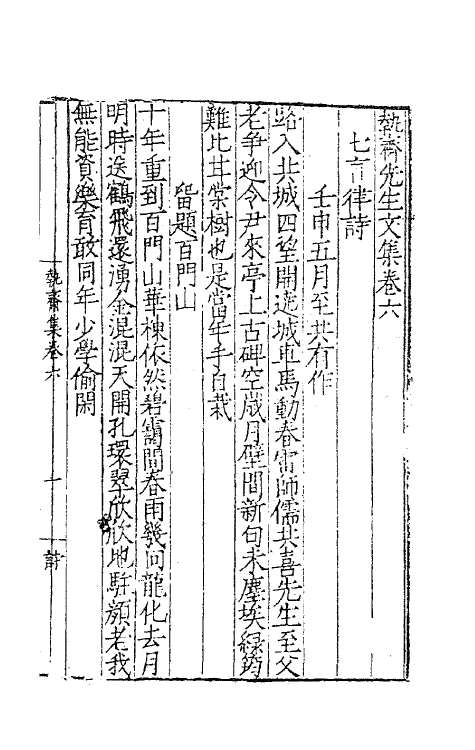 執齋先生文集卷六
七言律詩
壬申五月至共有作
路入共城四望開遶城車馬動春雷師儒共喜先生至父
老爭迎令尹來亭上古碑空歲月壁間新句未塵埃綠筠
難比甘棠樹也是當年手自栽
留題百門山
十年重到百門山華棟依然碧靄間春雨幾回龍化去月
明時送鶴飛還湧金混混天開孔環翠欣欣地駐顏老我
無能資樂育敢同年少學偷閑
執齋集卷六
一
詩